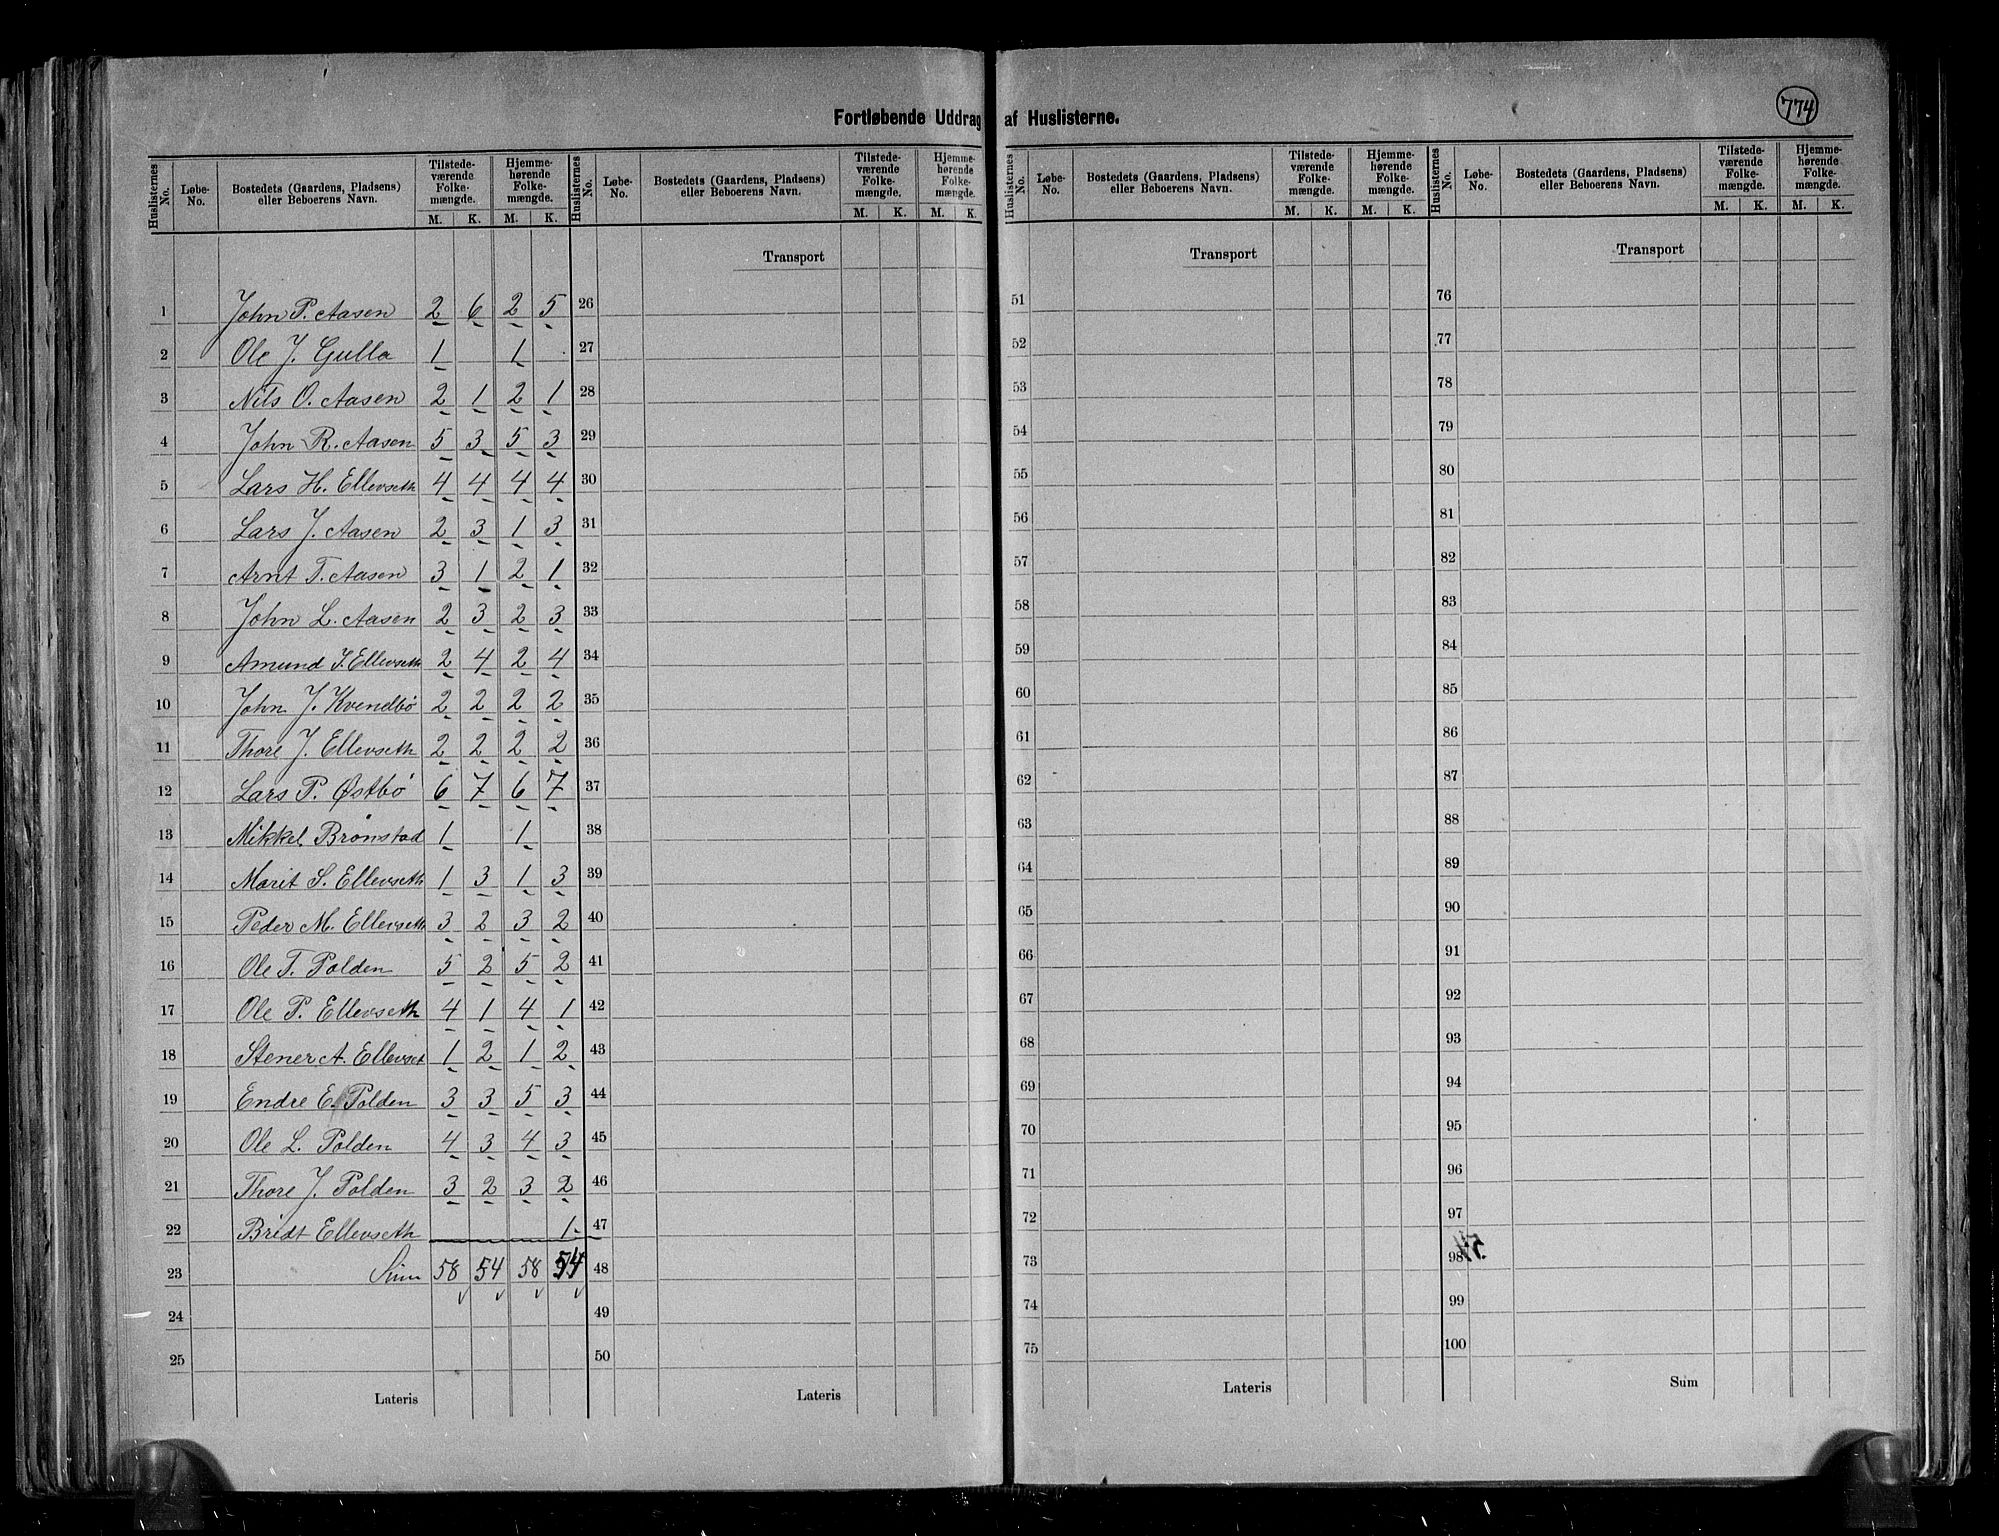 774
Fortløbende Uddrag af Huslisterne.
Huslisternes No. Løbe-No. Bostedets (Gaardens, Pladsens) eller Beboerens Navn. Tilstede-værende Folke-mængde. M. K. Hjemme-hørende Folke-mængde. M. K.
Huslisternes No. Løbe-No. Bostedets (Gaardens, Pladsens) eller Beboerens Navn. Tilstede-værende Folke-mængde. M. K. Hjemme-hørende Folke-mængde. M. K.
Huslisternes No. Løbe-No. Bostedets (Gaardens, Pladsens) eller Beboerens Navn. Tilstede-værende Folke-mængde. M. K. Hjemme-hørende Folke-mængde. M. K.
Huslisternes No. Løbe-No. Bostedets (Gaardens, Pladsens) eller Beboerens Navn. Tilstede-værende Folke-mængde. M. K. Hjemme-hørende Folke-mængde. M. K.
Transport Transport Transport
1 John P. Aasen 2 6 2 5 26 51 76
2 Ole J. Gulla 1 1 27 52 77
3 Nils O. Aasen 2 1 2 1 28 53 78
4 John R. Aasen 5 3 5 3 29 54 79
5 Lars H. Ellevseth 4 4 4 4 30 55 80
6 Lars J. Aasen 2 3 1 3 31 56 81
7 Arnt T. Aasen 3 1 2 1 32 57 82
8 John L. Aasen 2 3 2 3 33 58 83
9 Amund J. Ellevseth 2 4 2 4 34 59 84
10 John J. Kvendbø 2 2 2 2 35 60 85
11 Thore J. Ellevseth 2 2 2 2 36 61 86
12 Lars P. Østbø 6 7 6 7 37 62 87
13 Mikkel Brønstad 1 1 38 63 88
14 Marit S. Ellevseth 1 3 1 3 39 64 89
15 Peder M. Ellevseth 3 2 3 2 40 65 90
16 Ole T. Polden 5 2 5 2 41 66 91
17 Ole P. Ellevseth 4 1 4 1 42 67 92
18 Stener A. Ellevset 1 2 1 2 43 68 93
19 Endre E. Polden 3 3 5 3 44 69 94
20 Ole L. Polden 4 3 4 3 45 70 95
21 Thore J. Polden 3 2 3 2 46 71 96
22 Bridt Ellevseth 1 47 72 97
23 Sum 58 54 58 54 48 73 98
24 49 74 99
25 50 75 100
Lateris Lateris Lateris Sum